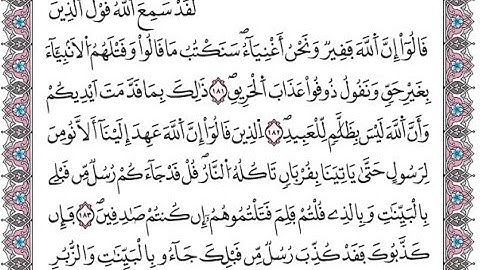 لَقَدْ سَمِعَ اَ۬للَّهُ قَوْلَ اَ۬لذِينَ
قَالُوٓاْ إِنَّ اَ۬للَّهَ فَقِيرٞ وَنَحْنُ أَغْنِيَآءُۖ سَنَكْتُبُ مَا قَالُواْ وَقَتْلَهُمُ اُ۬لَانۢبِئَآءَ
بِغَيْرِ حَقّٖ وَنَقُولُ ذُوقُواْ عَذَابَ اَ۬لْحَرِيقِۖ ١٨١ ذَٰلِكَ بِمَا قَدَّمَتَ اَيْدِيكُمْ
وَأَنَّ اَ۬للَّهَ لَيْسَ بِظَلَّٰمٖ لِّلْعَبِيدِۖ ١٨٢ اِ۬لذِينَ قَالُوٓاْ إِنَّ اَ۬للَّهَ عَهِدَ إِلَيْنَآ أَلَّا نُومِنَ
لِرَسُولٍ حَتَّىٰ يَاتِيَنَا بِقُرْبَانٖ تَاكُلُهُ اُ۬لنَّارُۖ قُلْ قَدْ جَآءَكُمْ رُسُلٞ مِّن قَبْلِے
بِالْبَيِّنَٰتِ وَبِالذِے قُلْتُمْ فَلِمَ قَتَلْتُمُوهُمُۥٓ إِن كُنتُمْ صَٰدِقِينَۖ ١٨٣ فَإِن
كَذَّبُوكَ فَقَدْ كُذِّبَ رُسُلٞ مِّن قَبْلِكَ جَآءُو بِالْبَيِّنَٰتِ وَالزُّبُرِ